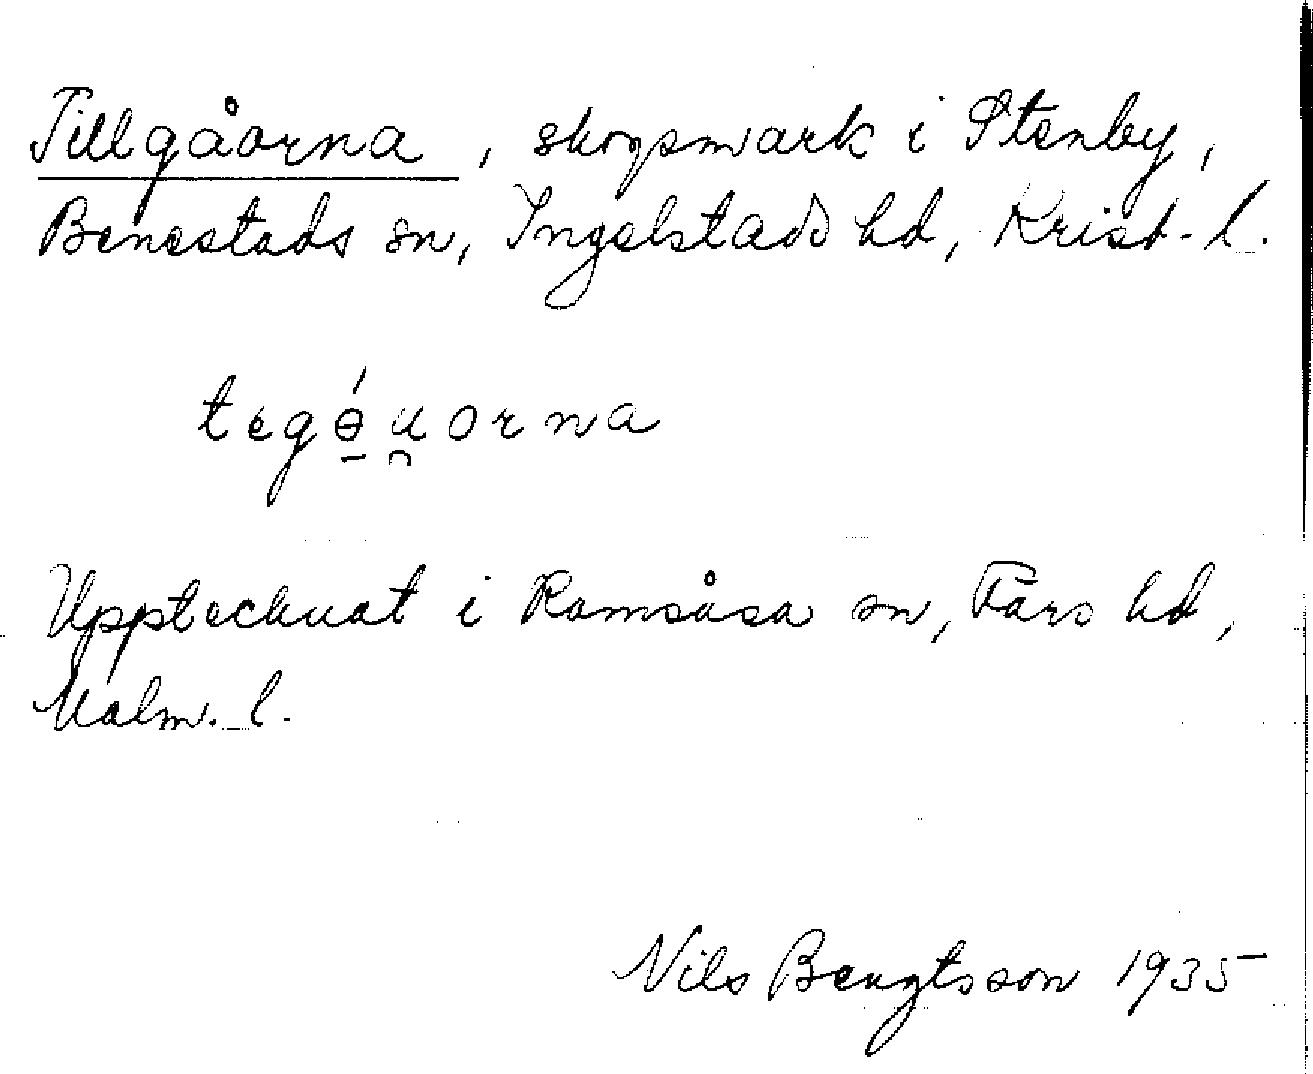 Tillgåorna, skogsmark i Stenby,
Benestads sn, Ingelstads hd, Krist. l.
tegɵ̱́u̯orna
Upptecknat i Ramsåsa sn, Färs hd,
Malm. l.
Nils Bengtsson 1935